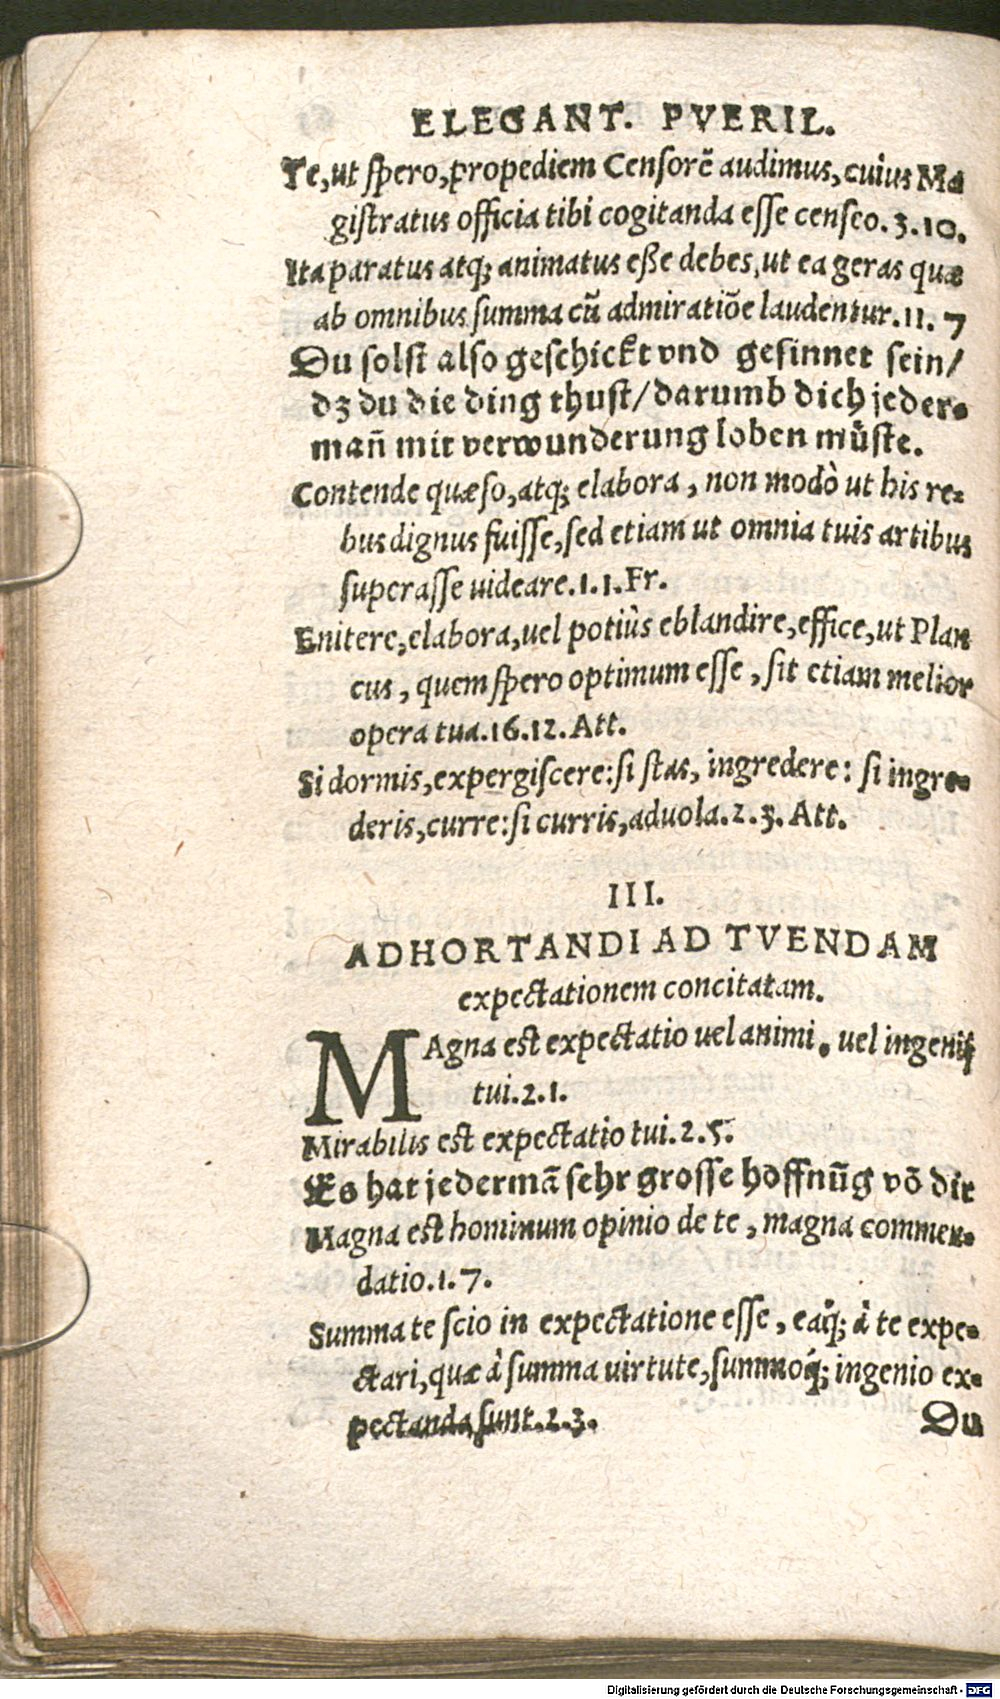 ELEGANT. PVERIL.
Te, ut ſpero, propediem Cenſorẽ audimus, cuius Ma
giſtratus officia tibi cogitanda eſſe cenſeo. 3. 10.
Ita paratus atq; animatus eße debes, ut ea geras quæ
ab omnibus ſumma cũ admiratiõe laudentur. 11. 7
Du ſolſt alſo geſchickt vnd geſinnet ſein/
dz du die ding thuſt/ darumb dich jeder⸗
mañ mit verwunderung loben müſte.
Contende quæſo, atq; elabora, non modò ut his re⸗
bus dignus fuiſſe, ſed etiam ut omnia tuis artibus
ſuperaſſe uideare. 1. 1. Fr.
Enitere, elabora, uel potiùs eblandire, effice, ut Plan
cus, quem ſpero optimum eſſe, ſit etiam melior
opera tua. 16. 12. Att.
Si dormis, expergiſcere: ſi ſtas, ingredere: ſi ingre⸗
deris, curre: ſi curris, aduola. 2. 3. Att.
III.
ADHORTANDI AD TVENDAM
expectationem concitatam.
MAgna est expectatio uel animi, uel ingenij
tui. 2. 1.
Mirabilis est expectatio tui. 2. 5.
Es hat jedermã ſehr groſſe hoffnũg võ dir
Magna est hominum opinio de te, magna commen⸗
datio. 1. 7.
Summa te ſcio in expectatione eſſe, eaq́; à te expe⸗
ctari, quæ à ſumma uirtute, ſummoq́; ingenio ex⸗
pectanda ſunt. 2. 3.
Du
Digitalisierung gefördert durch die Deutsche Forschungsgemeinschaft - DFG